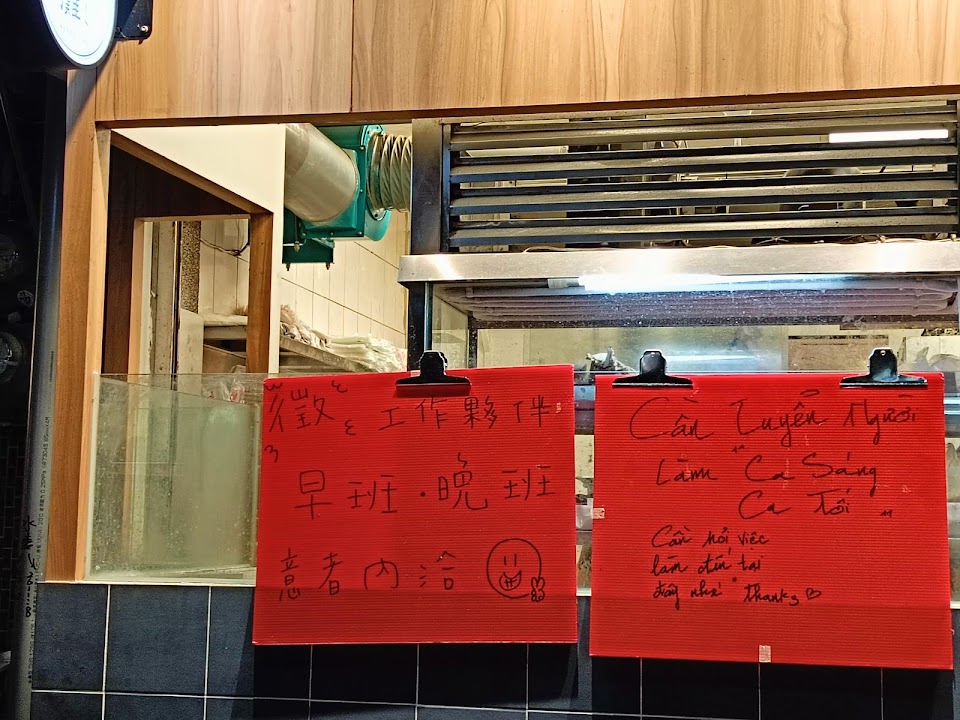 徵 工作夥伴
早班・晚班
意者內洽
Cần Tuyển Người
Làm Ca Sáng
Ca Tối
Cần hỏi việc
làm đến tại
đây nhé thanks